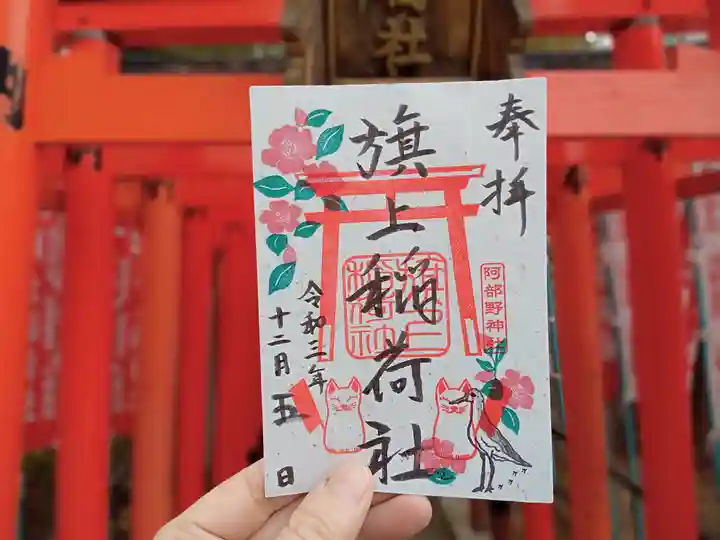 奉拝
阿部野神社
旗上稲荷社
令和三年
十二月五日
社